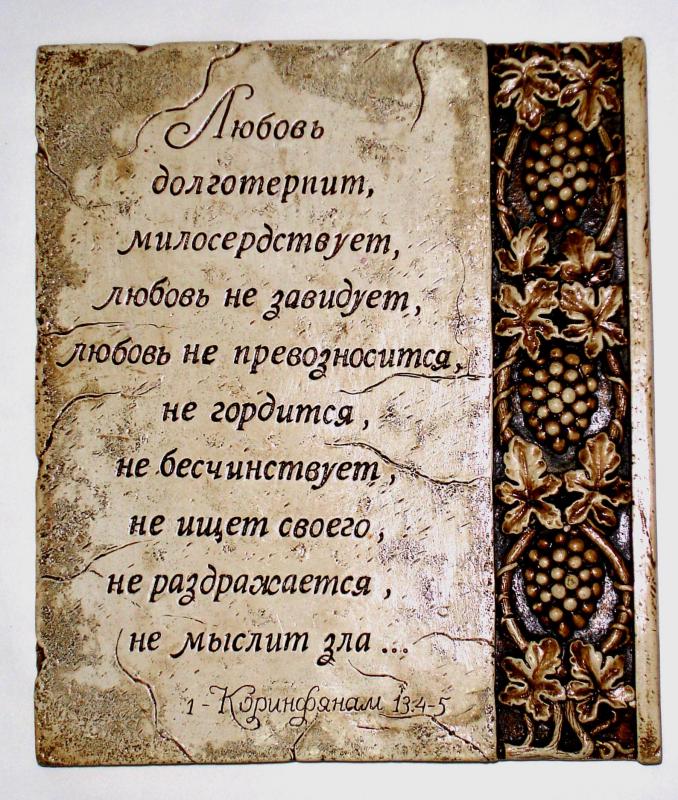 Любовь
долготерпит,
милосердствует,
любовь не завидует,
любовь не превозносится,
не гордится,
не бесчинствует,
не ищет своего,
не раздражается,
не мыслит зла...
1 - Коринфянам 13:4-5